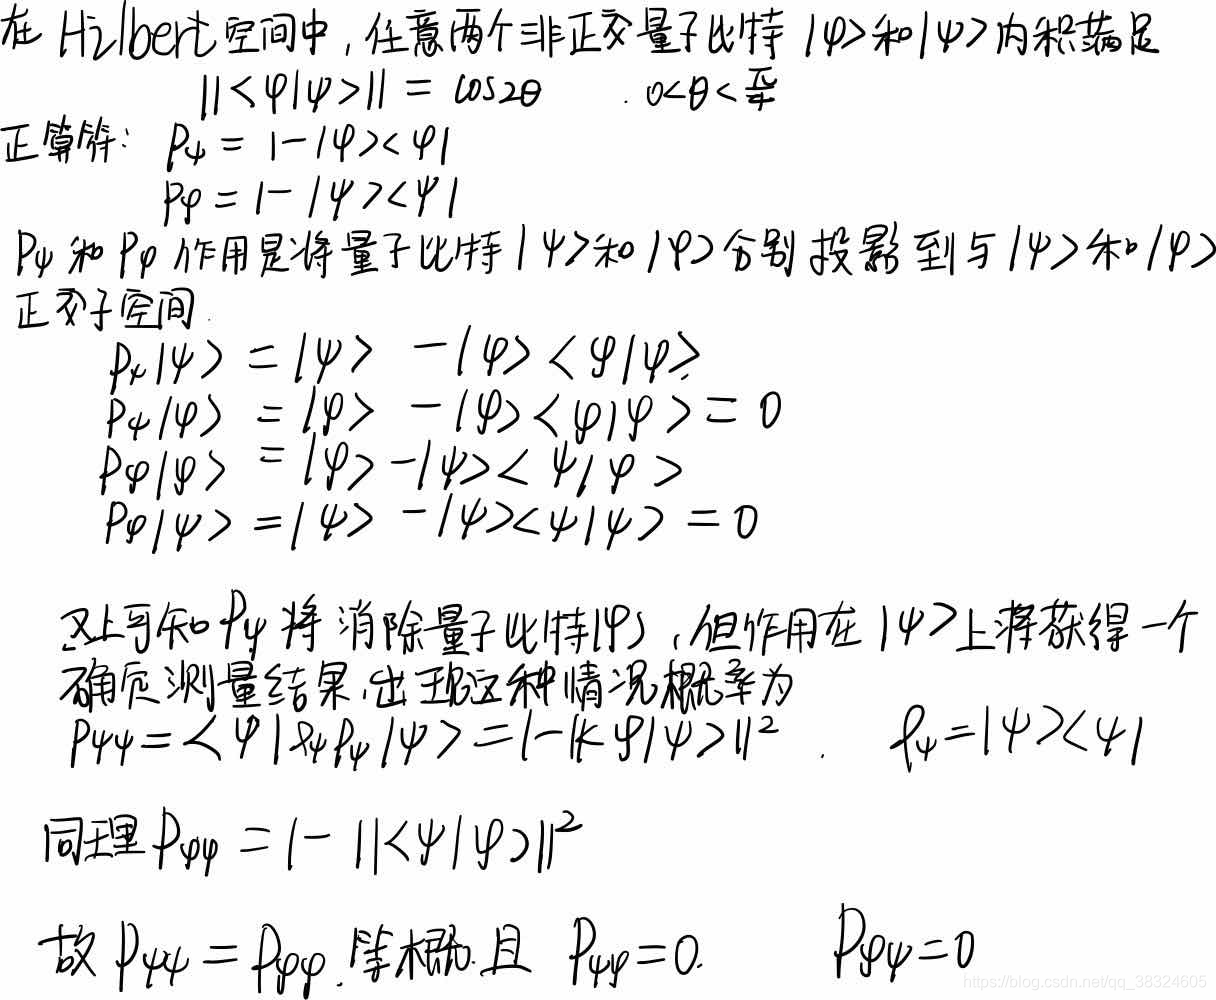 在 Hilbert 空间中,任意两个非正交量子比特 |φ>和|ψ>内积满足
||<φ|ψ>|| = cos2θ . 0<θ<π/4
正算符: Pψ = 1-|φ><φ|
Pφ = 1-|ψ><ψ|
Pψ 和 Pφ 作用是将量子比特|ψ>和|φ>分别投影到与|ψ>和|φ>
正交子空间.
Pψ|ψ> = |ψ> -|φ><φ|φ>
Pψ|φ> = |φ> -|φ><φ|φ> = 0
Pφ|φ> = |φ> -|ψ><ψ|φ>
Pφ|ψ> = |ψ> -|ψ><ψ|ψ> = 0
又上可知 Pψ 将消除量子比特|φ>,但作用在|ψ>上将获得一个
确定测量结果,出现这种情况概率为
Pψψ = <ψ|ρψPψ|ψ> = 1-||<φ|ψ>||² . ρψ=|ψ><ψ|
同理 Pφφ = 1- ||<ψ|φ>||²
故 Pψψ = Pφφ. 等概. 且 Pψφ=0. Pφψ=0
https://blog.csdn.net/qq_38324605